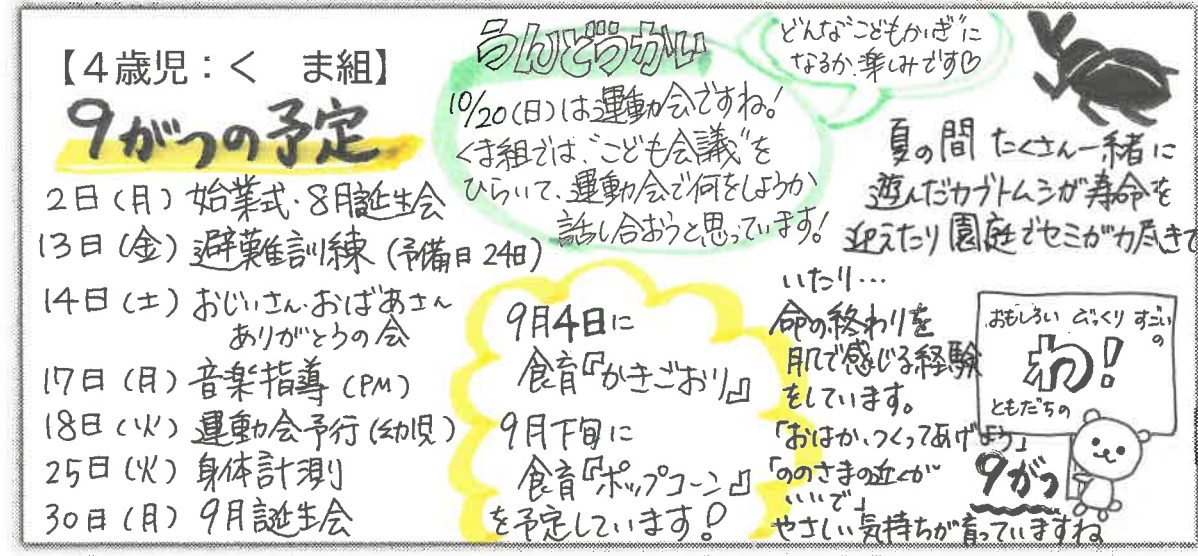 【4歳児：く ま組】
9がつの予定
2日(月) 始業式・8月誕生会
13日(金) 避難訓練(予備日24日)
14日(土) おじいさん・おばあさん
ありがとうの会
17日(月) 音楽指導(PM)
18日(火) 運動会予行(幼児)
25日(火) 身体計測
30日(月) 9月誕生会
うんどうかい
10/20(日)は運動会ですね!
くま組では、"こども会議"を
ひらいて、運動会で何をしようか
話し合おうと思っています!
どんな"こどもかいぎ"に
なるか、楽しみです♡
9月4日に
食育『かきごおり』
9月下旬に
食育『ポップコーン』
を予定しています!
夏の間 たくさん一緒に
遊んだカブトムシが寿命を
迎えたり園庭でセミが力尽きて
いたり…
命の終わりを
肌で感じる経験
をしています。
「おはか、つくってあげよう」
「ののさまの近くが
いいで」
やさしい気持ちが育っていますね
おもしろい びっくり すごい
の
わ!
ともだちの
9がつ